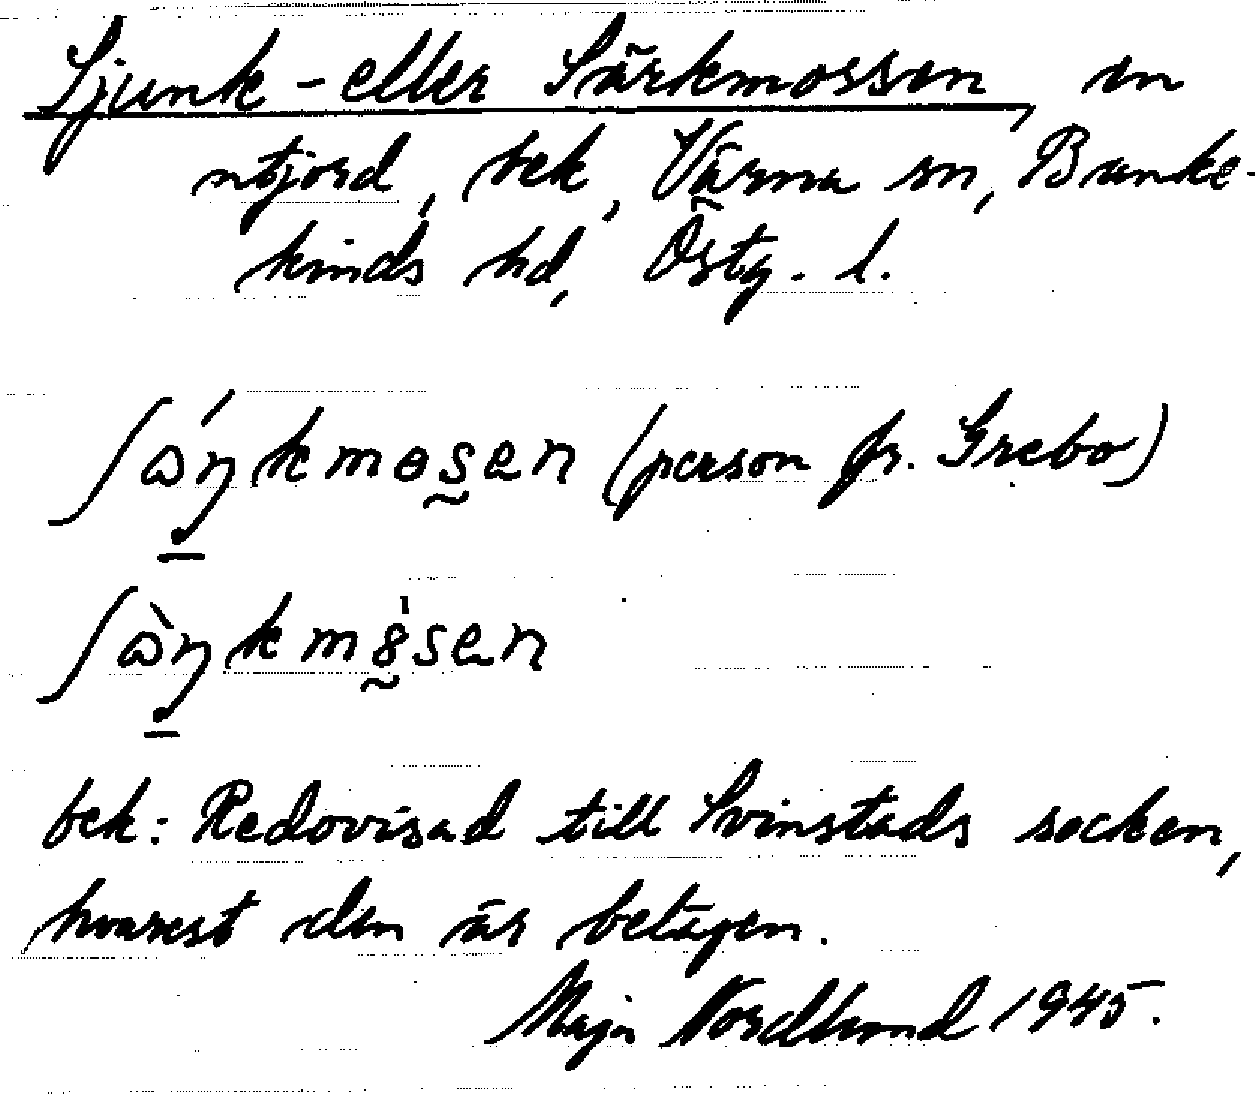 Ljunk- eller Särkmossen, en
utjord, bek, Värna sn, Banke-
kinds hd, Östg. l.
(person fr. Grebo)
bek: Redovisad till Svinstads socken,
hvarest den är belägen.
Maja Nordlund 1945.